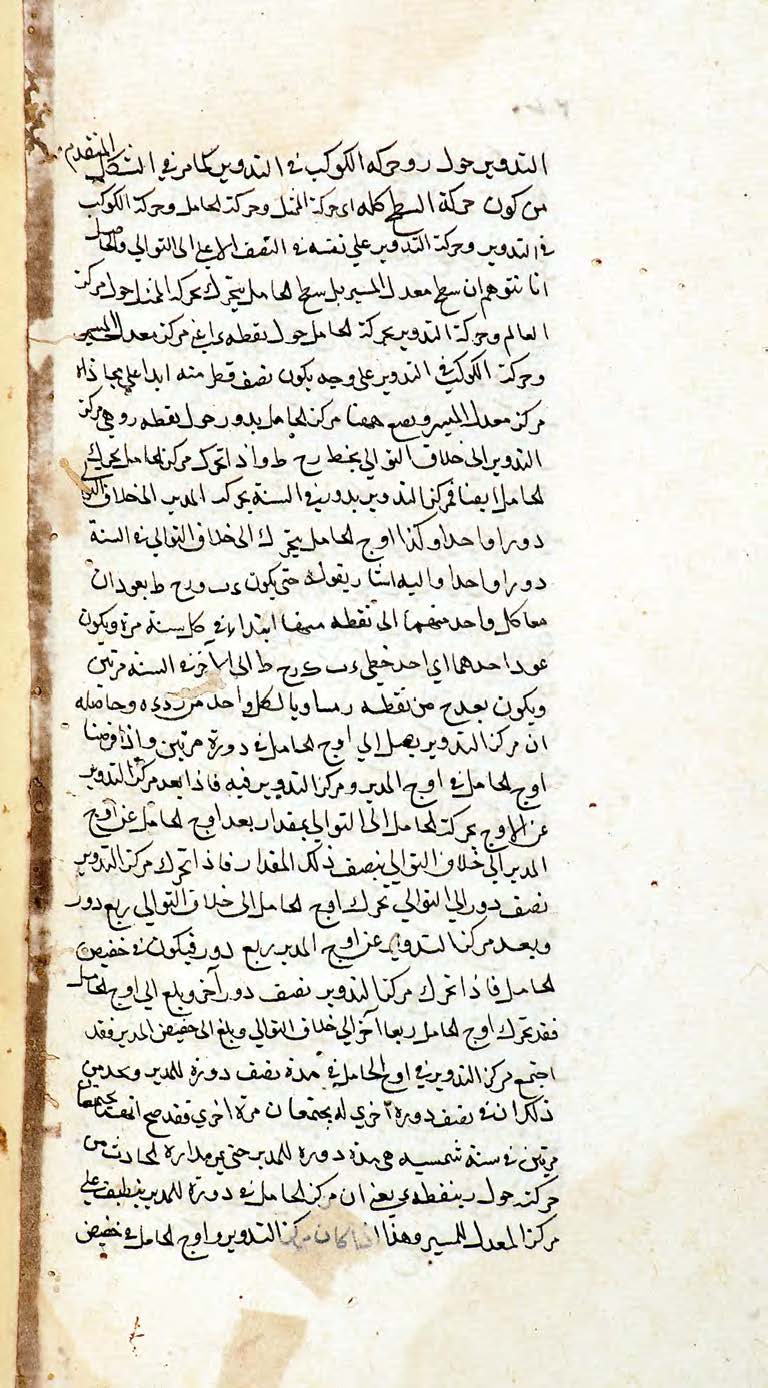 التدوير حول ر وحركه الكوكب في التدوير كما مر في الشكل المتقدم
من كون حركة السطح كله اى حركة الممثل وحركة الحامل وحركة الكوكب
في التدوير وحركة التدوير على نفسه في النصف الاعلى الى التوالي والحاصل
انا نتوهم ان سطح معدل المسير بل سطح الحامل يتحرك بحركة الممثل حول مركز
العالم وحركة التدوير بحركة الحامل حول نقطه اعني مركز معدل المسير
وحركة الكوكب في التدوير على وجه يكون نصف قطر منه ابدا على محاذاة
مركز معدل المسير ويصح ههنا مركز الحامل يدور حول نقطه ر وهي مركز
التدوير الى خلاف التوالي بخط ر ح ط واذا تحرك مركز الحامل تحرك
الحامل ايضا فمركز التدوير يدور في السنة بحركة المدير الى خلاف التوالي
دورا واحدا وكذا اوج الحامل يتحرك الى خلاف التوالي في السنة
دورا واحدا واليه اشار بقوله حتى يكون ء ب و ر ح ط يعودان
معا كل واحد منهما الى نقطه منها ابتداء في كل سنة مرة ويكون
عود احدهما اي احد خطي ء ب ر ح ط الى الآخر في السنه مرتين
ويكون بعد ح من نقطه ر مساويا لكل واحد من ر د ء ه وحاصله
ان مركز التدوير يصل الي اوج الحامل في دورة مرتين واذا فرضنا
اوج الحامل في اوج المدير ومركز التدوير فيه فاذا بعد مركز التدوير
عن الاوج بحركة الحامل الى التوالي بمقدار بعد اوج الحامل عن اوج
المدير الى خلاف التوالي بنصف ذلك المقدار فاذا تحرك مركز التدوير
نصف دور الي التوالي تحرك اوج الحامل الى خلاف التوالي ربع دور
وبعد مركز التدوير عن اوج المدير ربع دور فيكون في حضيض
الحامل فاذا تحرك مركز التدوير نصف دور آخر وبلغ الي اوج الحامل
فقد تحرك اوج الحامل ربعا آخر الي خلاف التوالي وبلغ الى حضيض المدير فقد
اجتمع مركز التدوير في اوج الحامل في مدة نصف دورة للمدير وبعد من
ذلك ان في نصف دورة اخري له يجتمعان مرة اخري فقد صح انهما يجتمعان
مرتين في سنة شمسيه هي مدة دورة للمدير حتى يمر مداره الحادث من
حركته حول ر بنقطه ء يعني ان مركز الحامل في دورة للمدير ينطبق على
مركز المعدل للمسير وهذا اذا كان مركز التدوير و اوج الحامل في حضيض